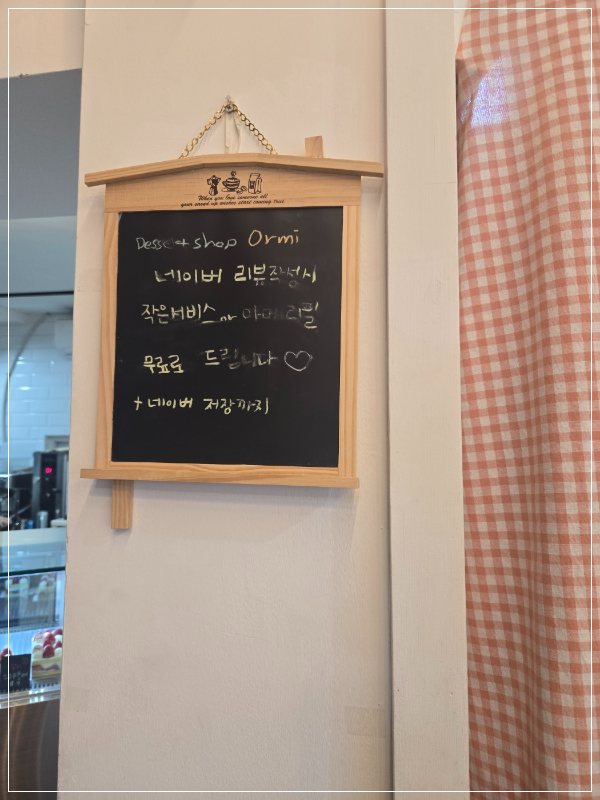 When you love someone all
your saved up wishes start coming true
Dessert shop Ormi
네이버 리뷰작성시
작은서비스 or 아메리필
무료로 드립니다 ♡
+ 네이버 저장까지